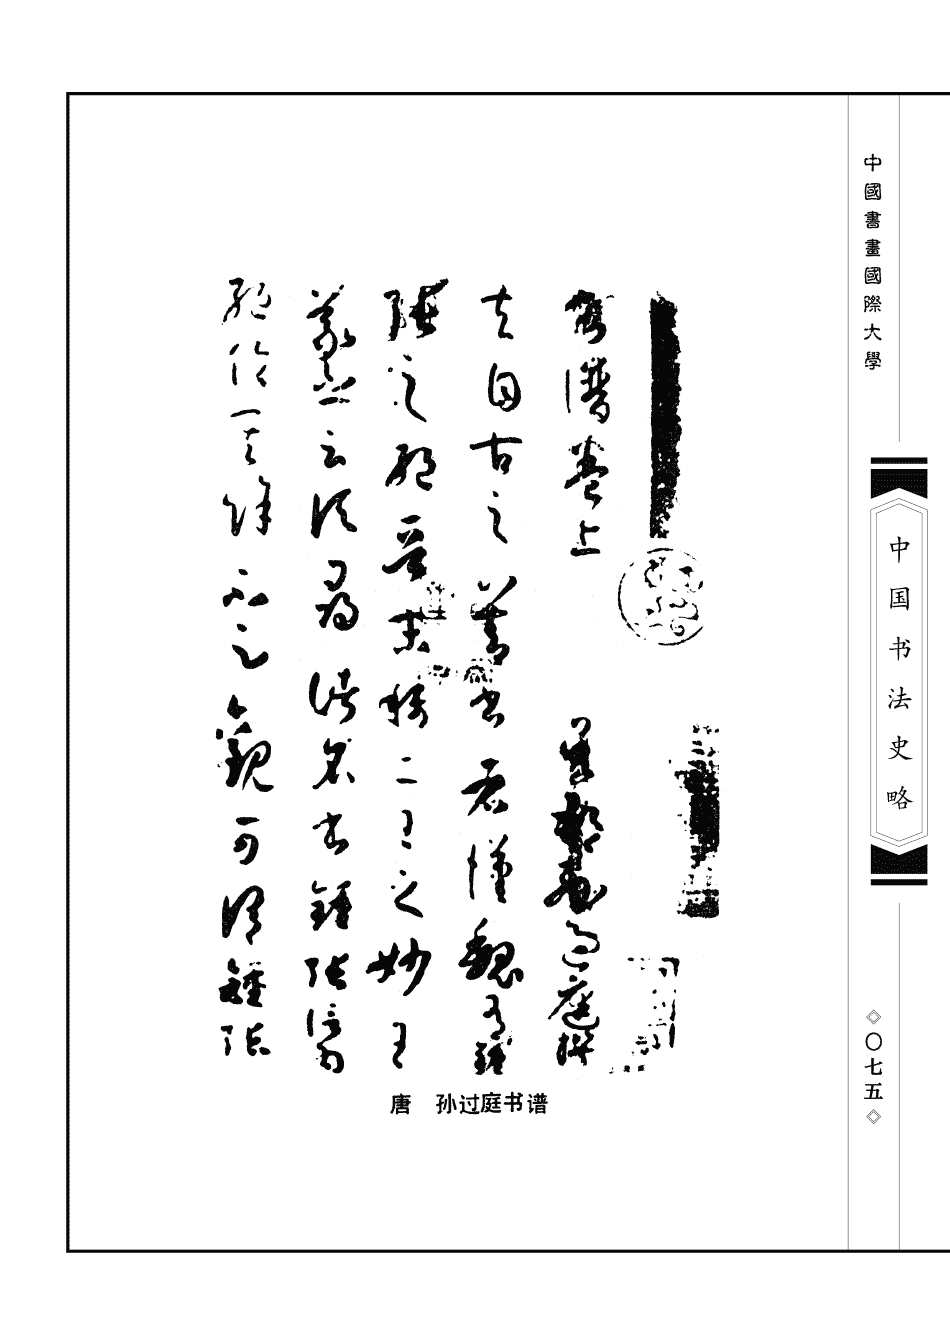 中國書畫國際大學
中国书法史略
〇七五
書譜卷上 吳郡孫過庭撰
夫自古之善書者漢魏有鍾
張之絕晉末稱二王之妙王
羲之云頃尋諸名書鍾張信為
絕倫其餘不足觀可謂鍾張
唐 孙过庭书谱